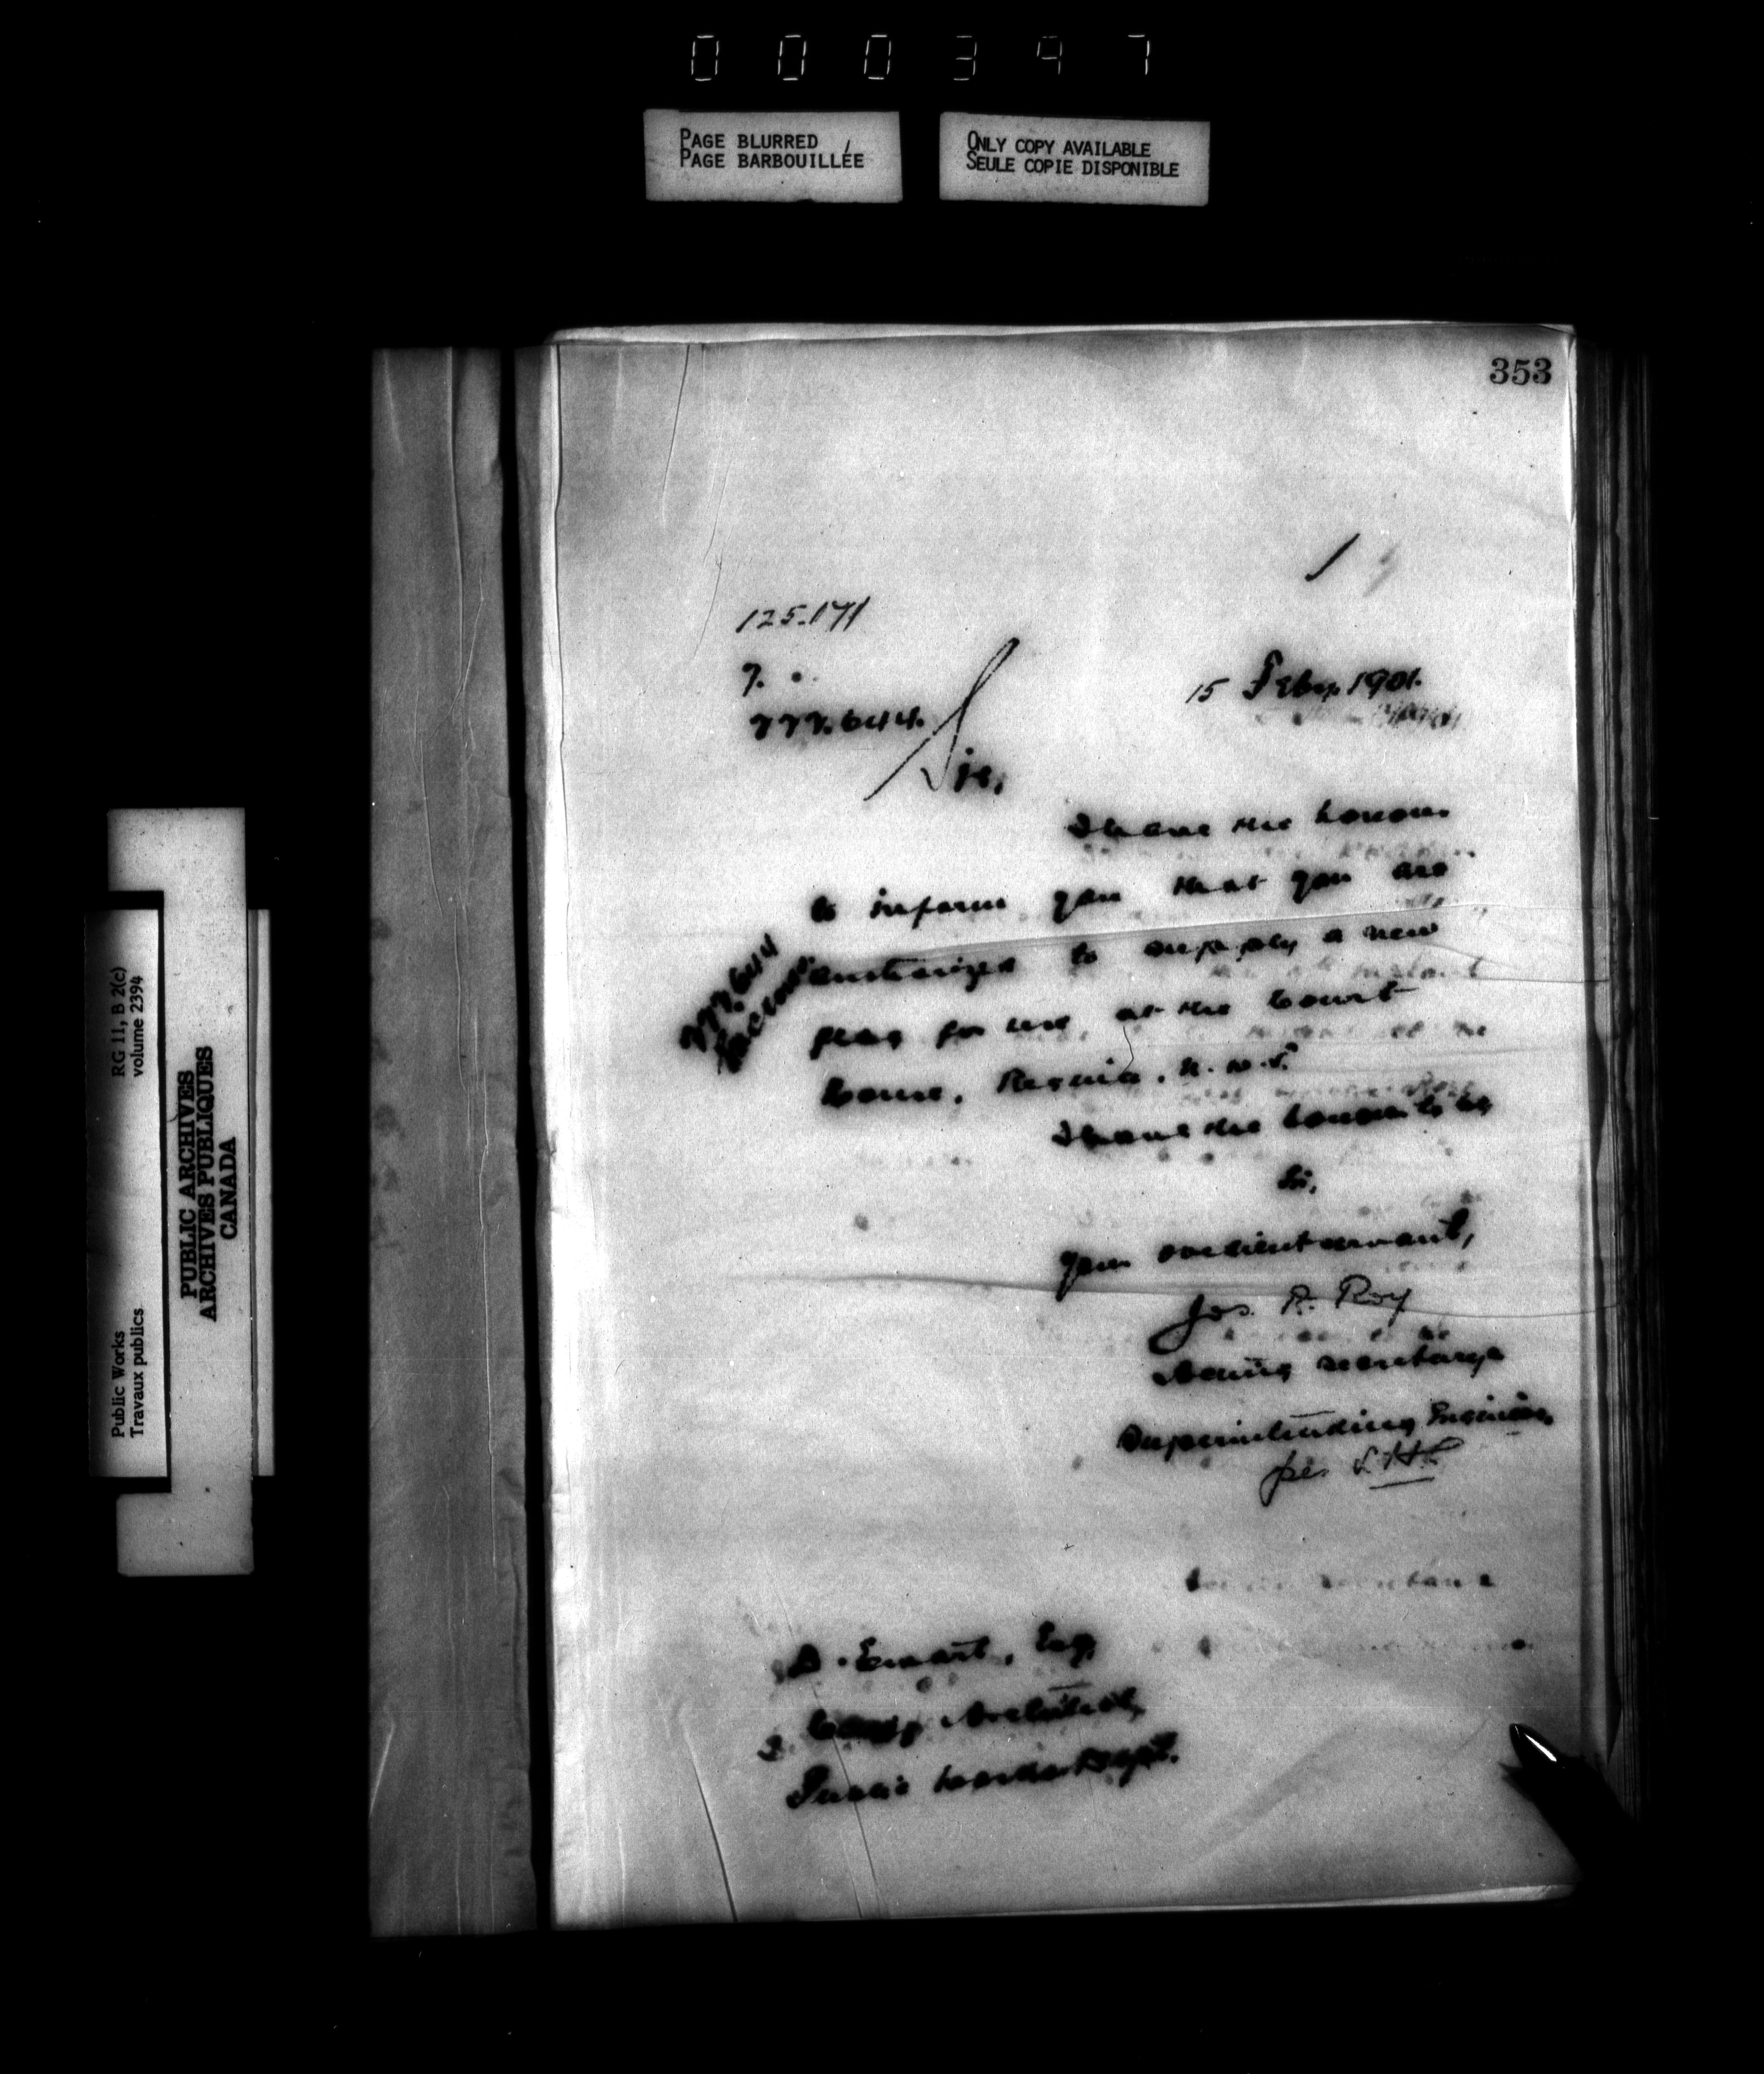 000347
PAGE BLURRED
PAGE BARBOUILLÉE
ONLY COPY AVAILABLE
SEULE COPIE DISPONIBLE
353
1
125.171
7.
227.644.
15 Feby. 1901.
Sir,
I have the honour
to inform you that you are
authorized to supply a new
flag for use, at the Court
House, Regina. N.W.T.
227.644
I have the honour to be
Sir,
Your obedient servant,
Jos. R. Roy
Acting Secretary &
Superintending Engineer,
per
D. Ewart, Esq.
Chief Architect,
Public Works Dept.
Public Works
Travaux publics
RG 11, B 2(c)
volume 2394
PUBLIC ARCHIVES
ARCHIVES PUBLIQUES
CANADA